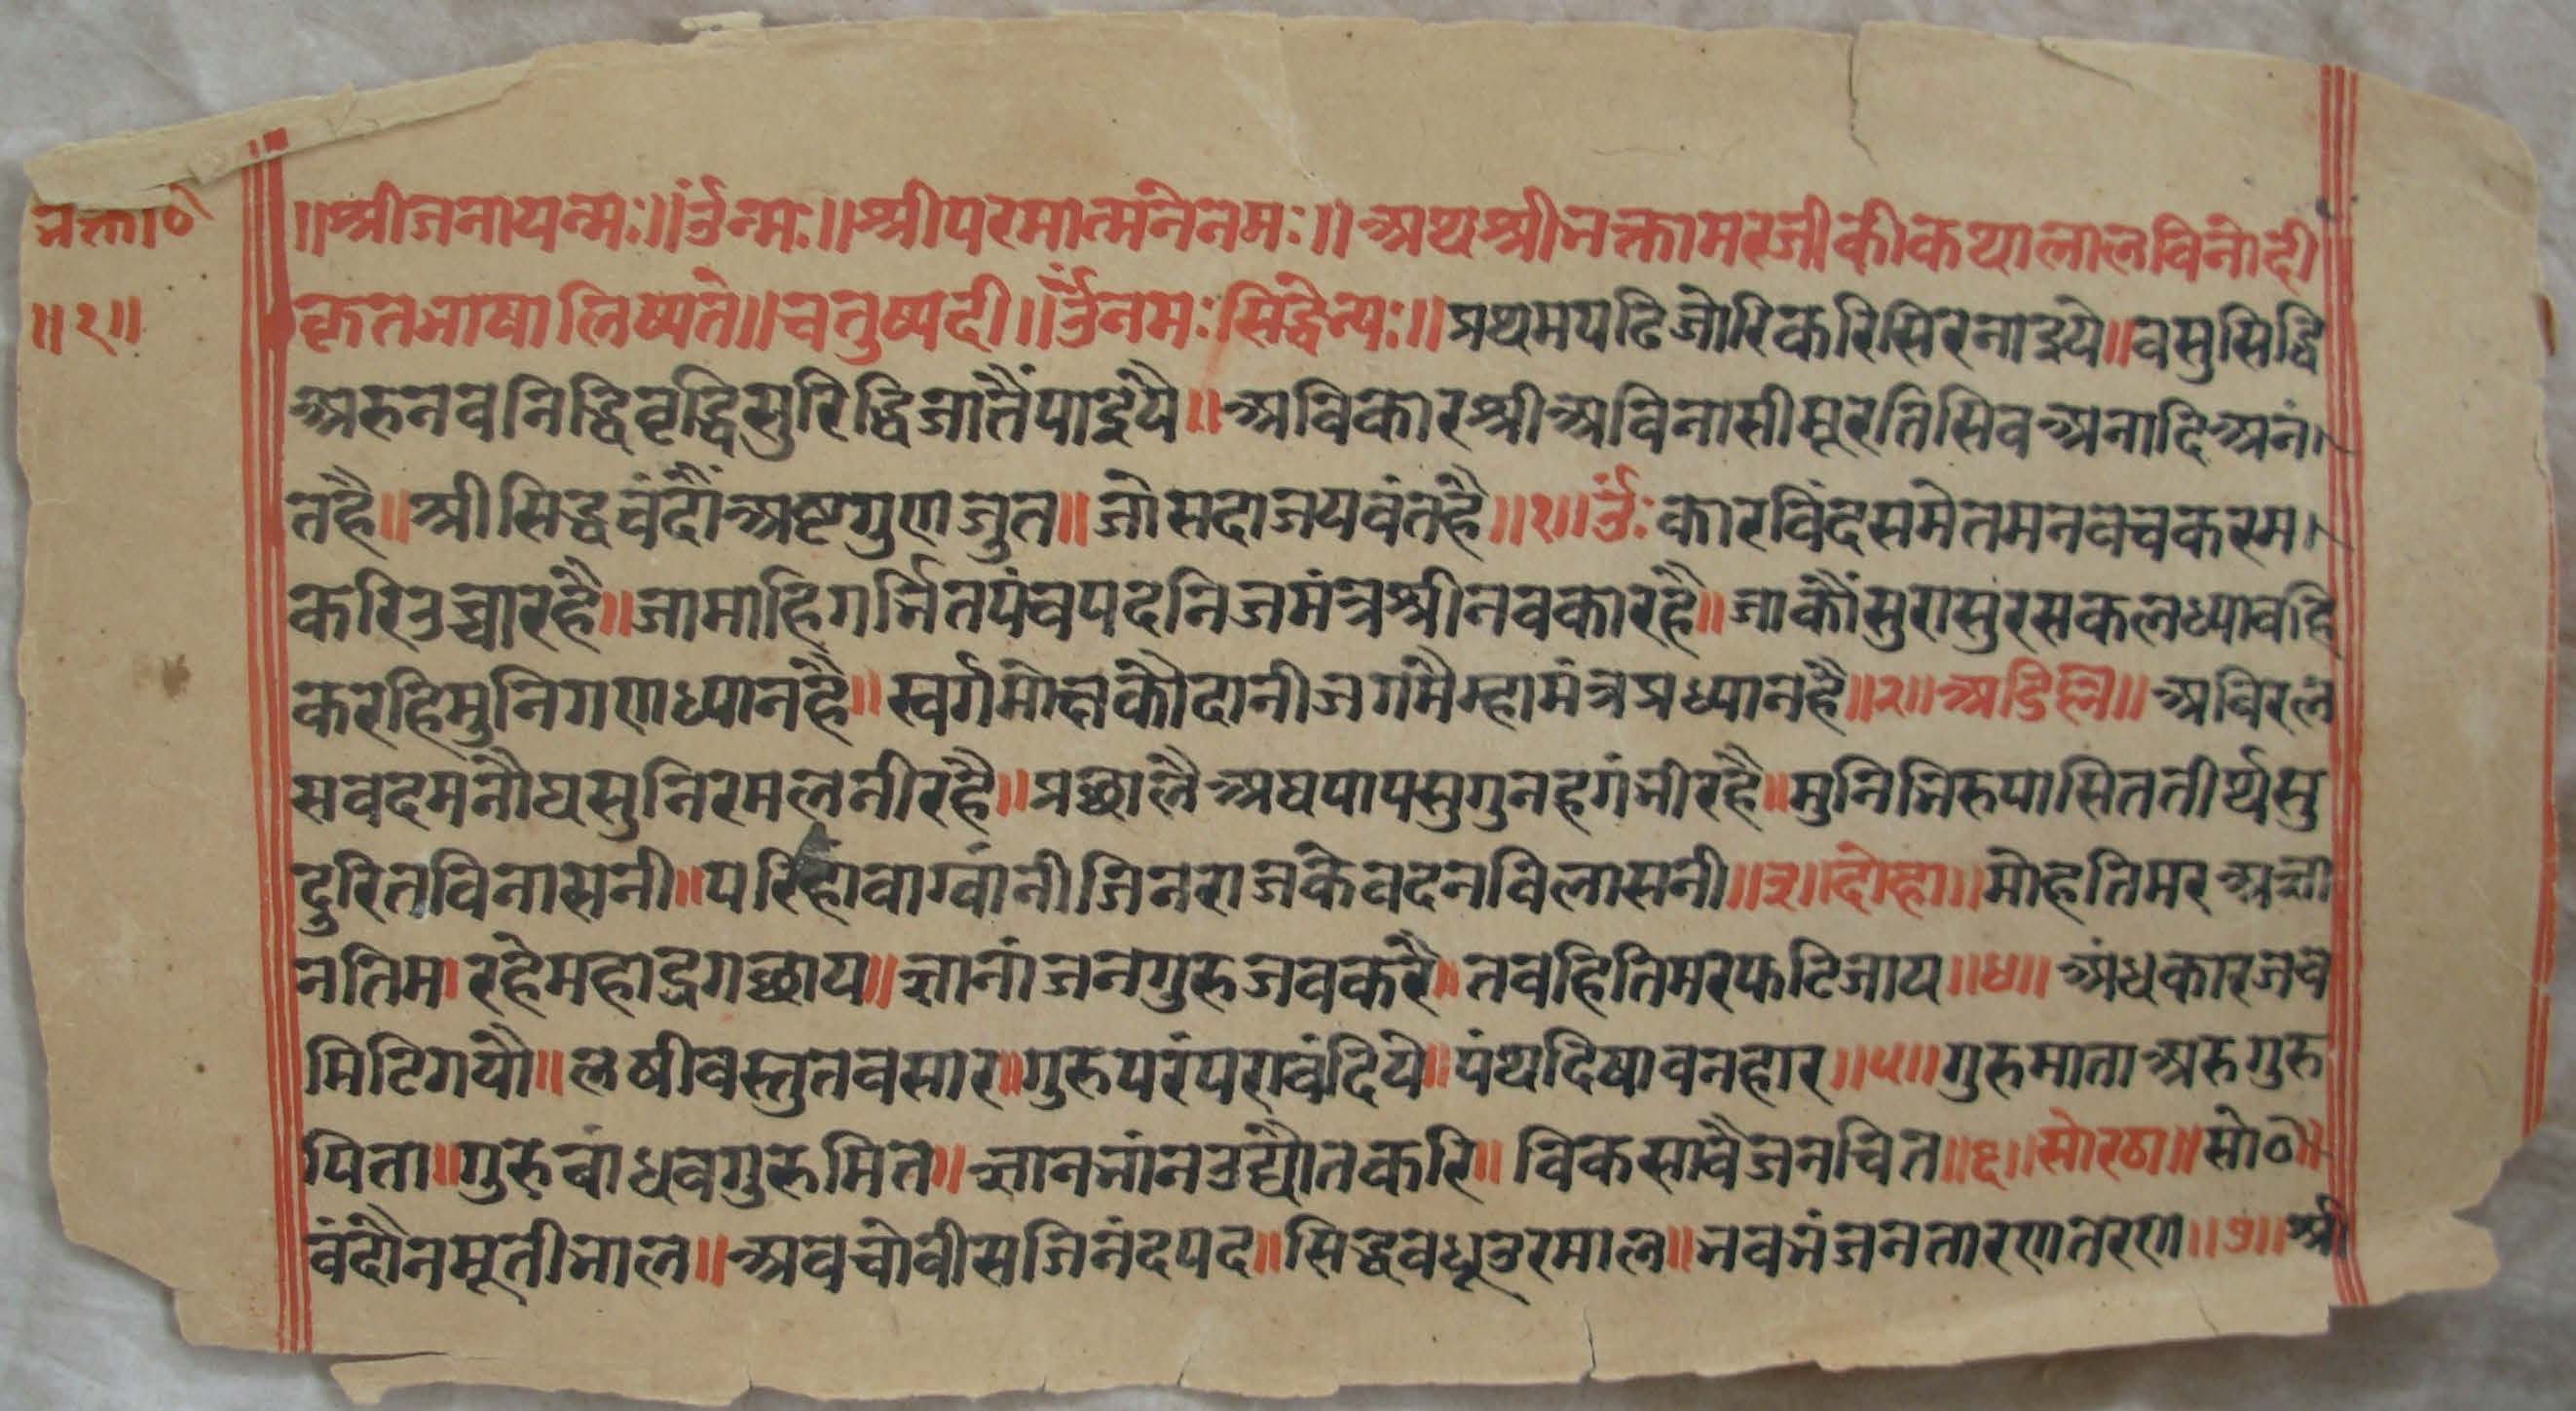 भक्ता०
॥१॥
॥श्रीजनायन्मः॥ॐन्मः॥श्रीपरमात्मनेनमः॥अथश्रीभक्तामरजीकीकथालालविनोदी
कृतभाषालिष्यते॥चतुष्पदी॥ॐनमःसिद्धेभ्यः॥प्रथमपढिजोरिकरिसिरनाइये॥वसुसिद्धि
अरुनवनिद्धिवृद्धिसुरिद्धिजातैंपाइयै॥अविकारश्रीअविनासीमूरतिसिवअनादिअनं।
तहै॥श्रीसिद्धवंदौंअष्टगुणजुत॥जोसदाजयवंतहै॥१॥ॐःकारविंदसमेतमनवचकरम।
करिउच्चारहै॥जामाहिगर्भितपंचपदनिजमंत्रश्रीनवकारहै॥जाकौंसुरासुरसकलध्यावहि
करहिमुनिगणध्यानहै॥स्वर्गमोक्षकौदानीजगमैम्हामंत्रप्रध्यानहै॥२॥अडिल्ल॥अविरल
सवदमनौघसुनिरमलनीरहै॥प्रछालैअघपापसुगुनहगंभीरहै॥मुनिभिरुपासिततीर्थसु
दुरितविनासनी॥परिहांवाग्वांनीजिनराजकेवदनविलासनी॥३॥दोहा॥मोहतिमरअज्ञा
नतिम।रहेमहाद्रगछाय॥ज्ञानांजनगुरुजवकरै॥तवहितिमरफटिजाय॥४॥अंधकारजव
मिटिगयौ॥लषीवस्तुतवसार॥गुरुपरंपरावंदिये॥पंथदिषावनहार॥५॥गुरुमाताअरुगुरु
पिता॥गुरुबांधवगुरुमित॥ज्ञानभांनउद्यौतकरि॥विकसावैजनचित॥६॥सोरठा॥सो०॥
वंदौनमूतीभाल॥अवचोवीसजिनंदपद॥सिद्धवधूउरमाल॥भवभंजनतारणतरण॥७॥श्री